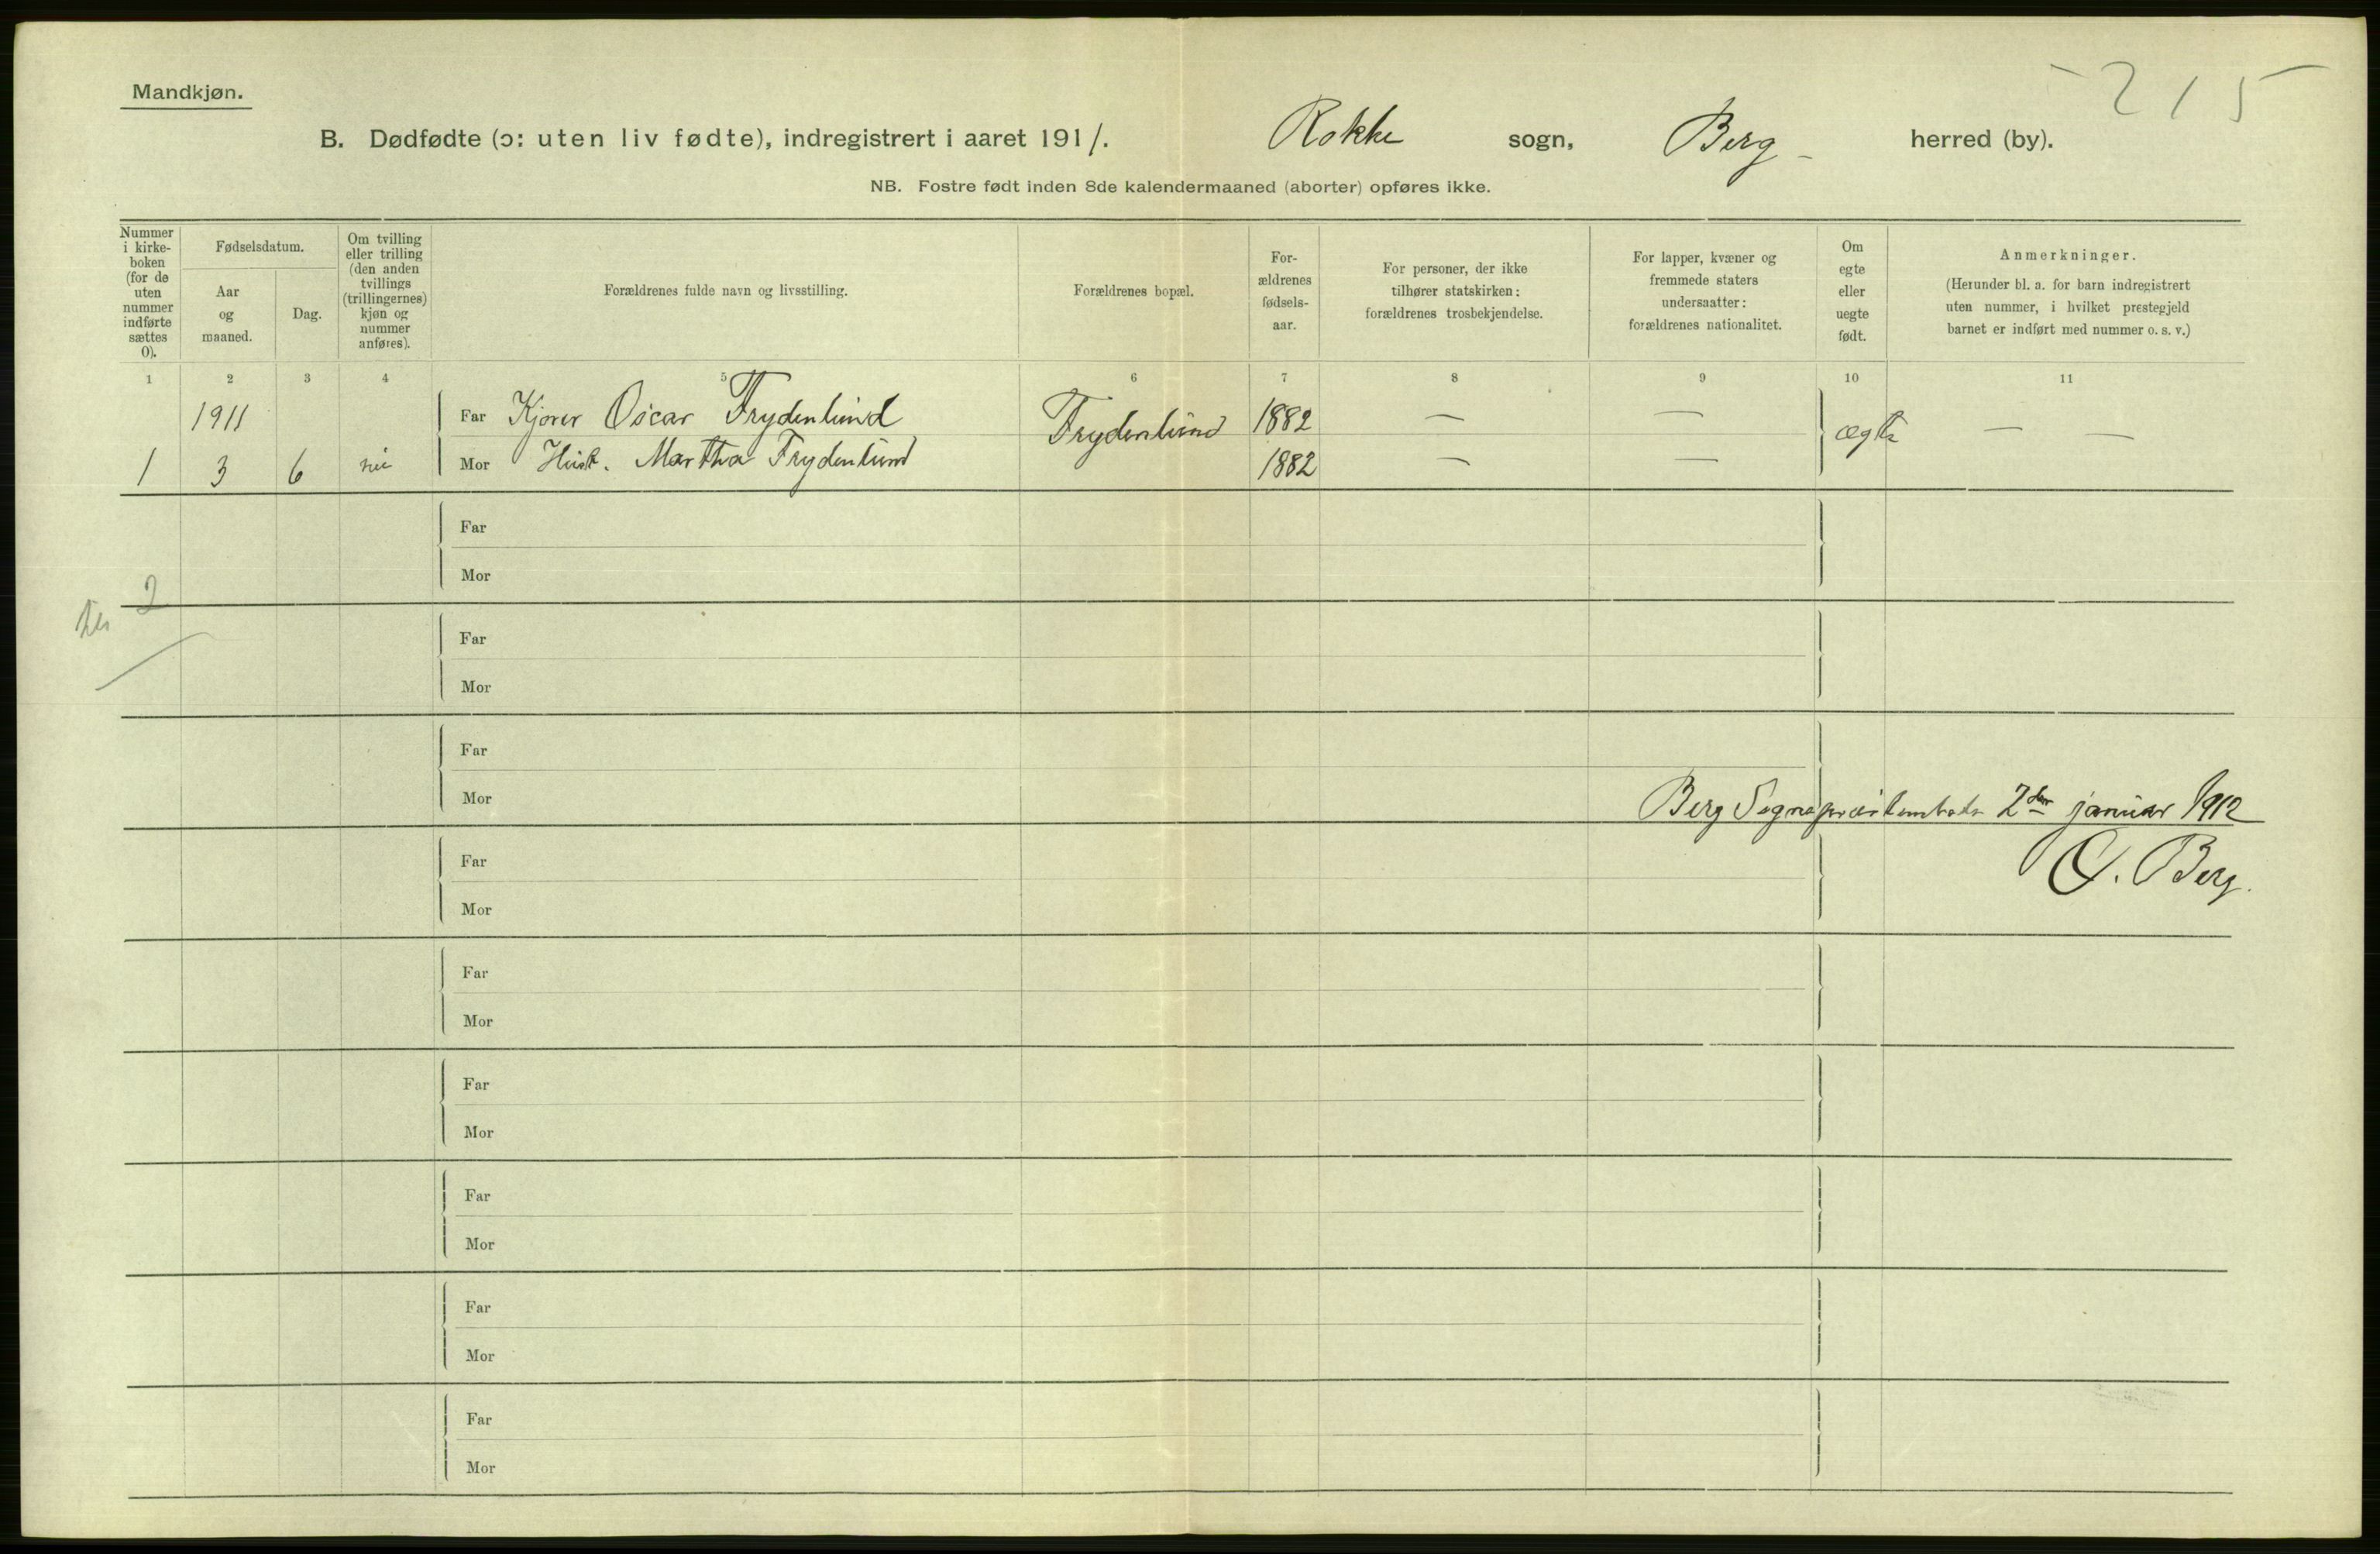 Mandkjøn.
215
B. Dødfødte (ɔ: uten liv fødte), indregistrert i aaret 1911. Rokke sogn, Berg herred (by).
NB. Fostre født inden 8de kalendermaaned (aborter) opføres ikke.
Nummer
i kirke-
boken
(for de
uten
nummer
indførte
sættes
0).
Fødselsdatum.
Aar
og
maaned.
Dag.
Om tvilling
eller trilling
(den anden
tvillings
(trillingernes)
kjøn og
nummer
anføres).
Forældrenes fulde navn og livsstilling.
Forældrenes bopæl.
For-
ældrenes
fødsels-
aar.
For personer, der ikke
tilhører statskirken:
forældrenes trosbekjendelse.
For lapper, kvæner og
fremmede staters
undersaatter:
forældrenes nationalitet.
Om
egte
eller
uegte
født.
Anmerkninger.
(Herunder bl. a. for barn indregistrert
uten nummer, i hvilket prestegjeld
barnet er indført med nummer o. s. v.)
1 2 3 4 5 6 7 8 9 10 11
1911 Far Kjører Oscar Frydenlund Frydenlund 1882 — — ægte — —
1 3 6 nei Mor Hust. Martha Frydenlund 1882 — —
Far
Mor
2
Far
Mor
Far
Mor
Berg Sogneprestembete 2den januar 1912
Far
O. Berg.
Mor
Far
Mor
Far
Mor
Far
Mor
Far
Mor
Far
Mor